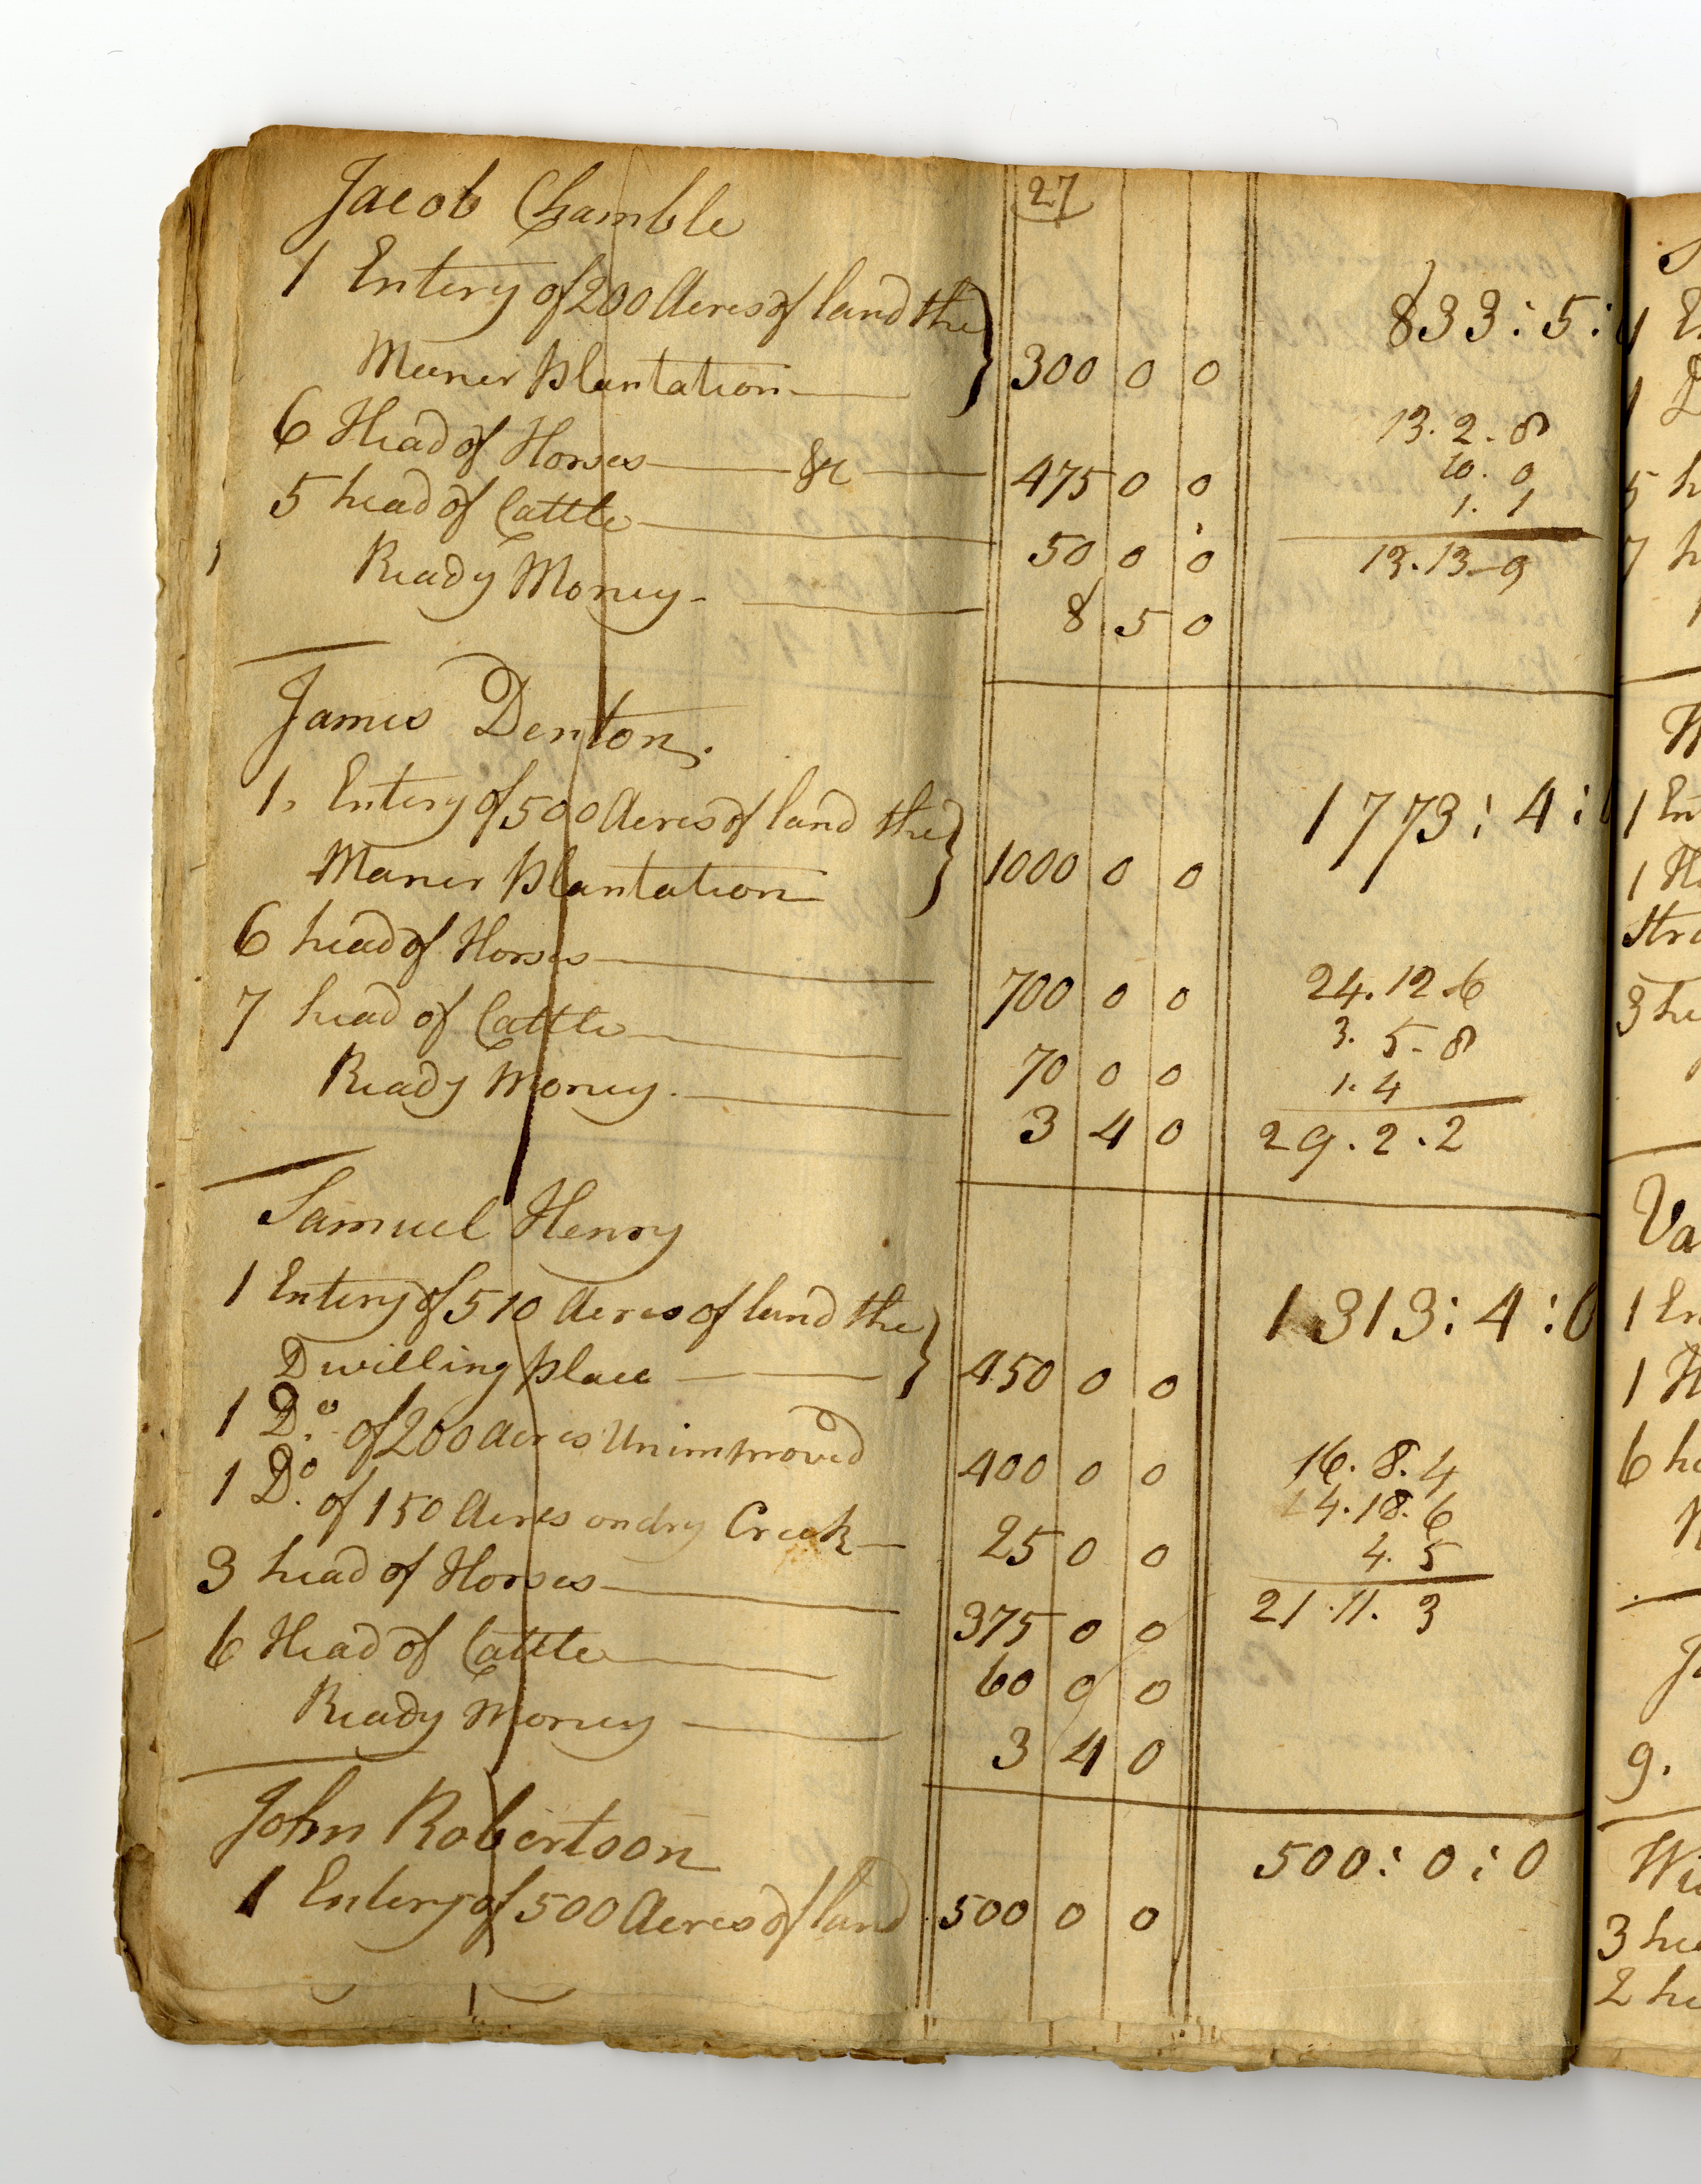 27
Jacob Chamble
1 Entery of 200 Acres of land the
Maner plantation 300 0 0 833:5:0
6 Head of Horses &c 475 0 0 13.2.8
10.0
5 head of Cattle 50 0 0 1.1
13.13.9
Ready Money 8 5 0
James Denton.
1. Entery of 500 Acres of land the 1773:4:0
Maner plantation 1000 0 0
6 head of Horses 700 0 0 24.12.6
3.5.8
7 head of Cattle 70 0 0 1.4
Ready Money 3 4 0 29.2.2
Samuel Henry
1 Entery of 510 Acres of land the 1313:4:0
Dwilling place 450 0 0
1 Do. of 200 acres Unimproved 400 0 0 16.8.4
1 Do. of 150 Acres on dry Creek 25 0 0 4.18.6
4.5
3 head of Horses 375 0 0 21.11.3
6 Head of Cattle 60 0 0
Ready Money 3 4 0
John Robertson 500:0:0
1 Entery of 500 Acres of land 500 0 0
1 En
1 H
Stra
3 he
Va
1 En
1 H
6 he
9.
Wi
3 hea
2 he